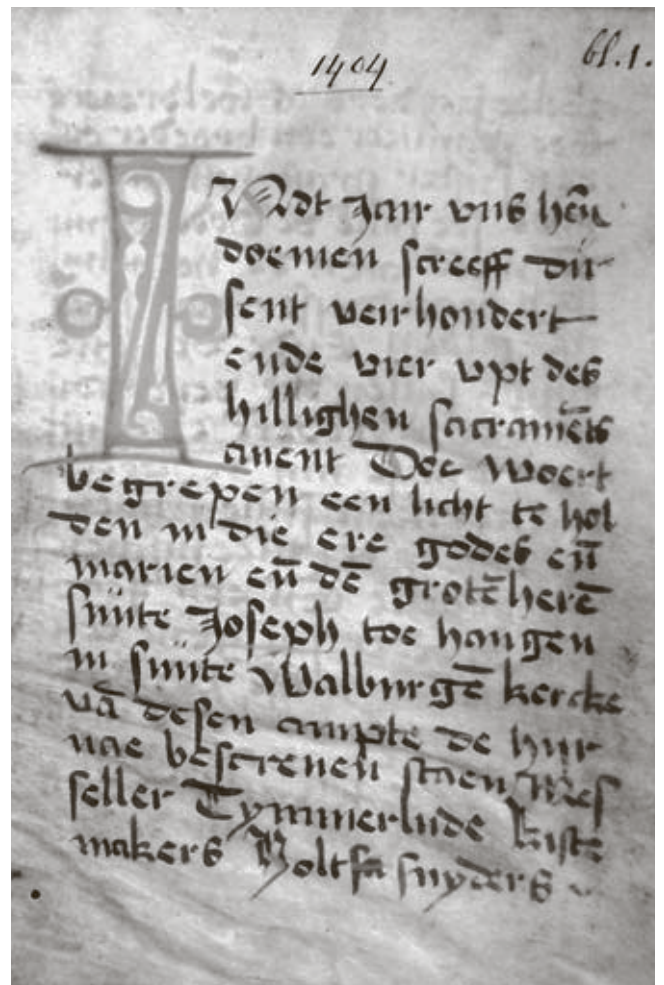 1404
bl. 1.
I Ndt Jair vns hẽn
doemen screeff dur
sent veirhondert
ende vier vpt des
hillighen sacramẽts
auent Doe woert
begrepen een licht te hol
den in die ere godes eñ
marien eñ dē grotē herē
sunte Joseph toe hangen
in sunte Walburgē kercke
vā desen ampte de hur
nae bescreuen staen Mes
seller Tymmerlude kiste
makers Holtsa snyders